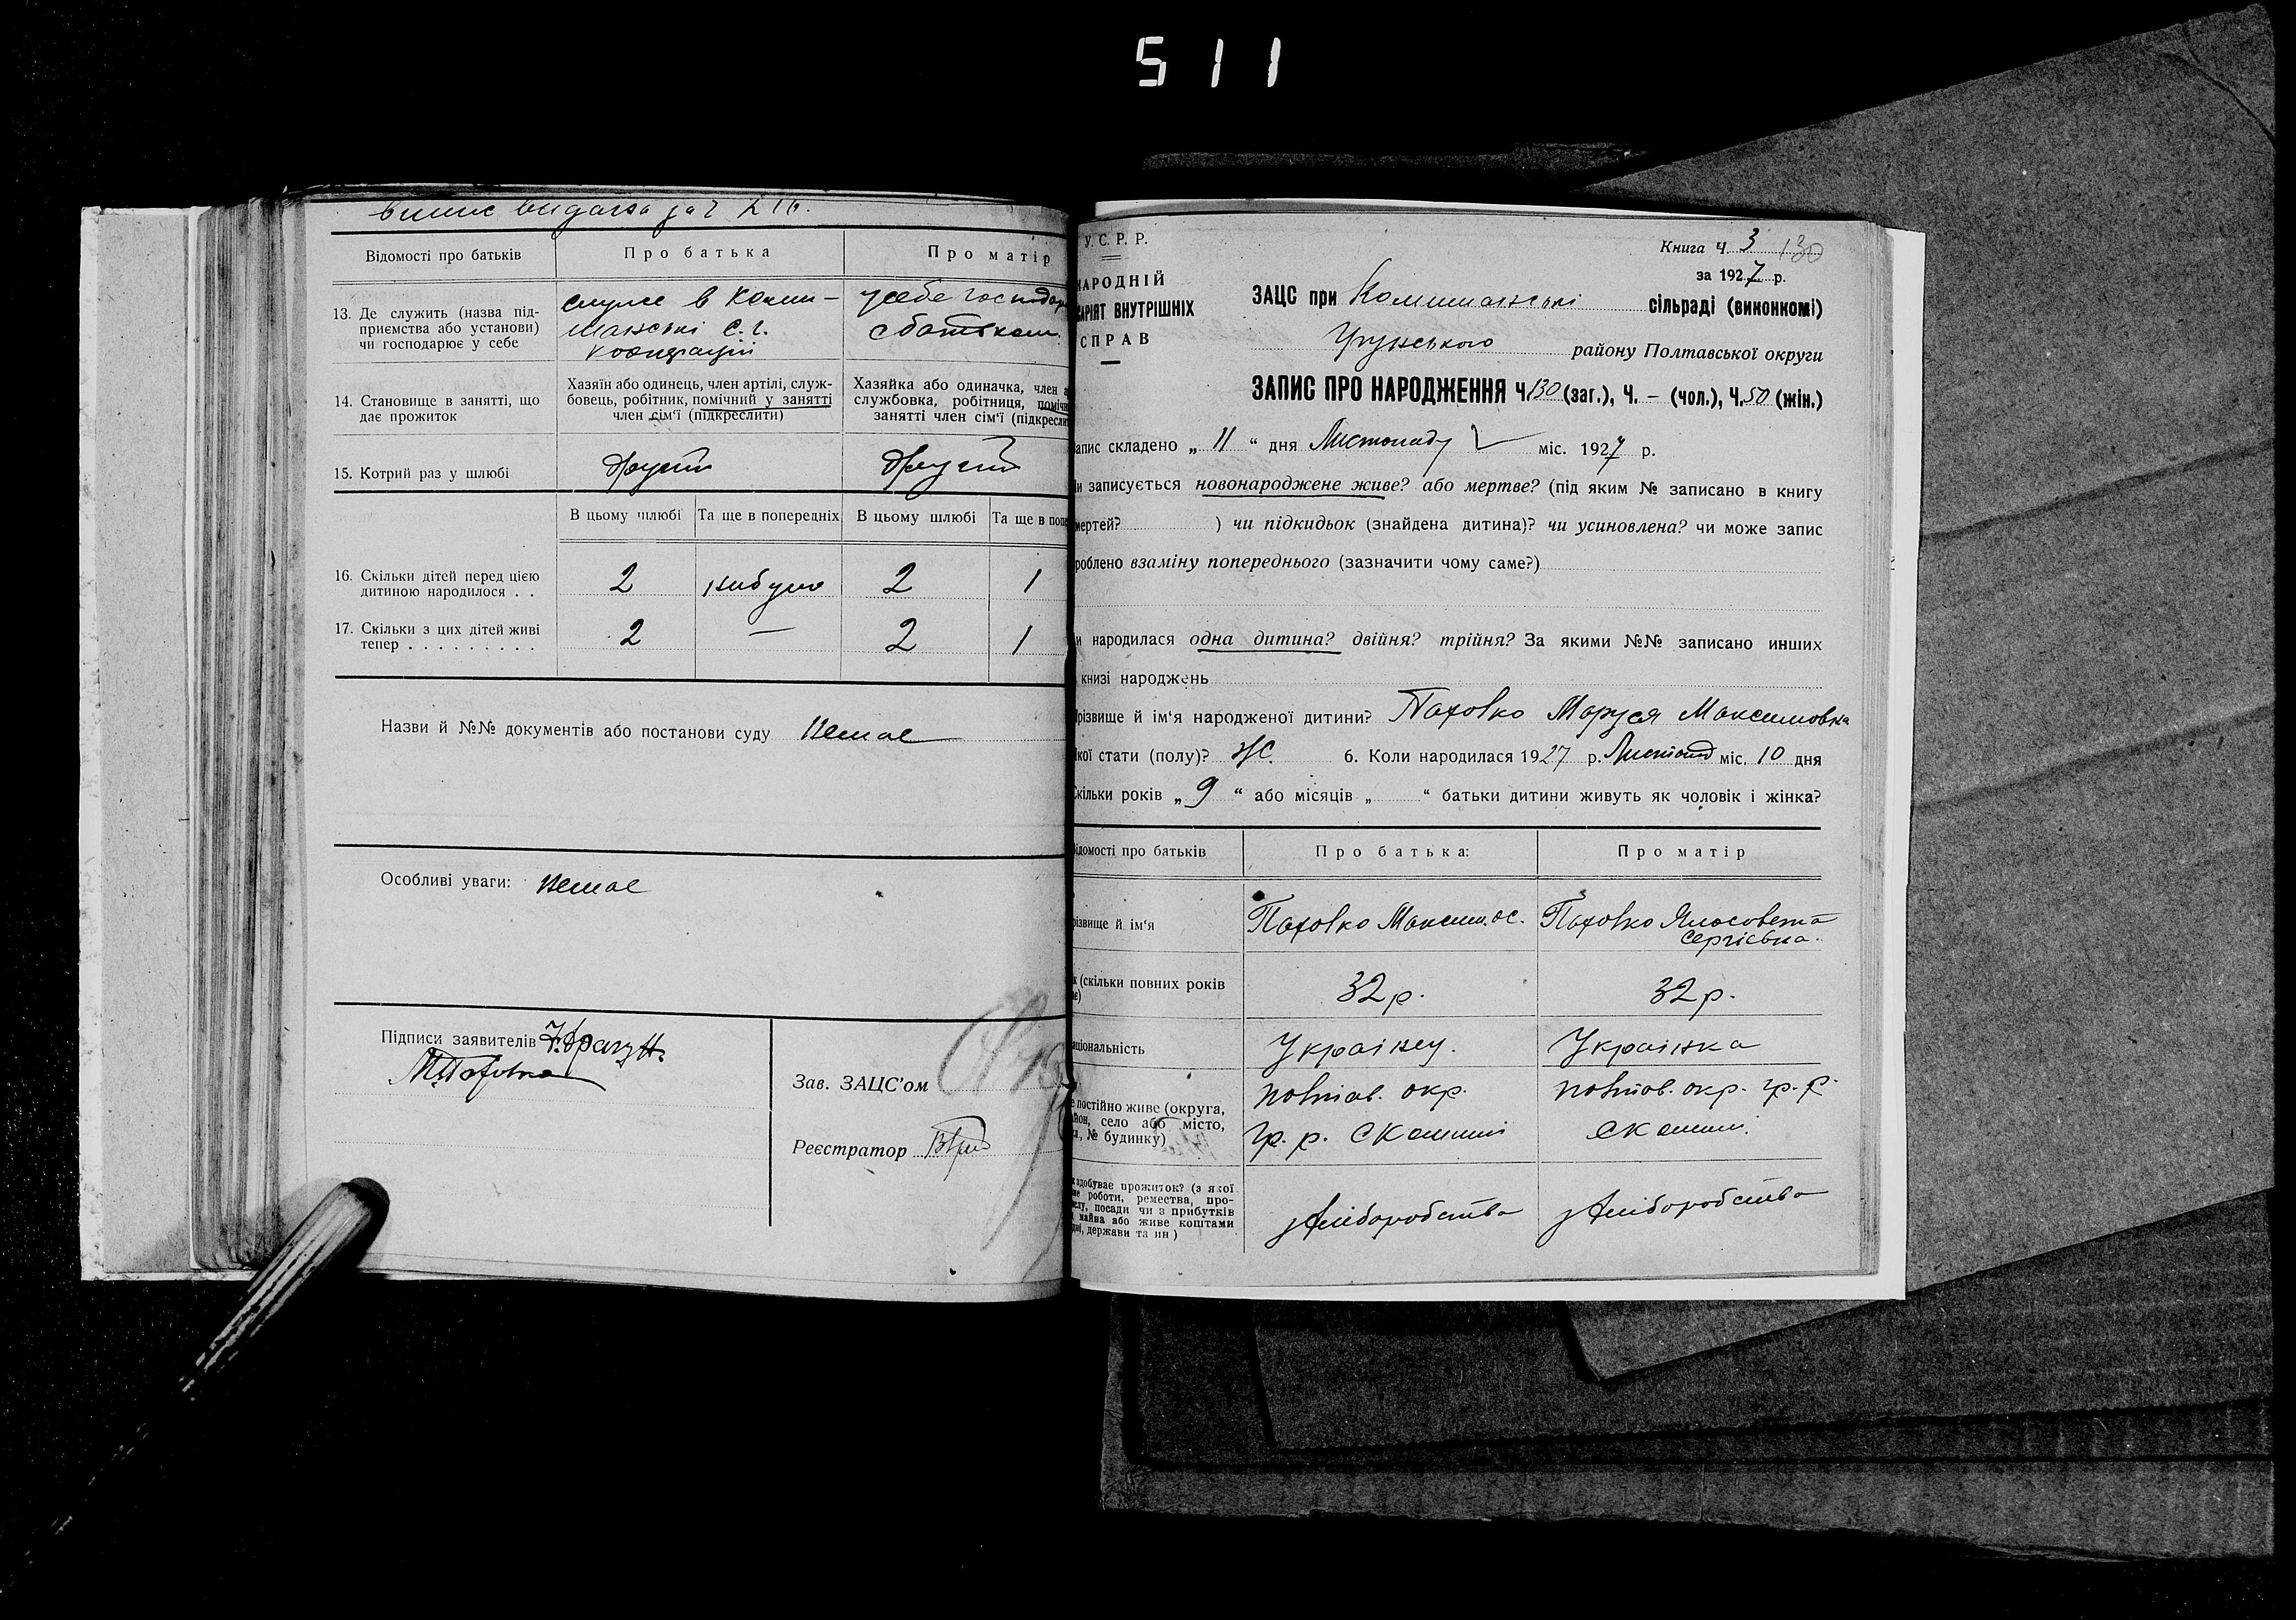 511
Відомості про батьків
Про батька
Про матір
13. Де служить (назва під-
приємства або установи)
чи господарює у себе
служе в Коми-
шанські с. г.
кооперації
у себе господар
з батьком
14. Становище в занятті, що
дає прожиток
Хазяїн або одинець, член артілі, служ-
бовець, робітник, помічний у занятті
член сім'ї (підкреслити)
Хазяйка або одиначка, член а
службовка, робітниця, помічн
занятті член сім'ї (підкресли
15. Котрий раз у шлюбі
другий
другий
В цьому шлюбі
Та ще в попередніх
В цьому шлюбі
Та ще в попе
16. Скільки дітей перед цією
дитиною народилося . .
2
небуло
2
1
17. Скільки з цих дітей живі
тепер . . . . . . . . .
2
—
2
1
Назви й №№ документів або постанови суду немає
Особливі уваги: немає
Підписи заявителів
Зав. ЗАЦС'ом
Реєстратор
У. С. Р. Р.
НАРОДНІЙ
АРІЯТ ВНУТРІШНІХ
СПРАВ
Книга Ч. 3 130
за 1927 р.
ЗАЦС при Комишанські сільраді (виконкомі)
Грунського району Полтавської округи
ЗАПИС ПРО НАРОДЖЕННЯ Ч. 130 (заг.), Ч. – (чол.), Ч. 50 (жін.)
апис складено „ 11 “ дня Листопаду міс. 1927 р.
и записується новонароджене живе? або мертве? (під яким № записано в книгу
мертей? ) чи підкидьок (знайдена дитина)? чи усиновлена? чи може запис
роблено взаміну попереднього (зазначити чому саме?)
и народилася одна дитина? двійня? трійня? За якими №№ записано инших
книзі народжень
різвище й ім'я народженої дитини? Паховко Маруся Максимовна
кої стати (полу)? Ж. 6. Коли народилася 1927 р. Листопад міс. 10 дня
кільки років „ 9 “ або місяців „ “ батьки дитини живуть як чоловік і жінка?
ідомості про батьків
Про батька:
Про матір
різвище й ім'я
Паховко Максим. ос.
Паховко Ялосовета
Сергієвна.
к (скільки повних років
є)
32 р.
32 р.
аціональність
Українец.
Українка
е постійно живе (округа,
айон, село або місто,
л., № будинку)
полтав. окр.
гр. р. с Комиші
полтав. окр. гр. р.
с Комиш.
к здобуває прожиток? (з якої
ме роботи, ремества, про-
слу, посади чи з прибутків
майна або живе коштами
дні, держави та ин)
хліборобства
хліборобства